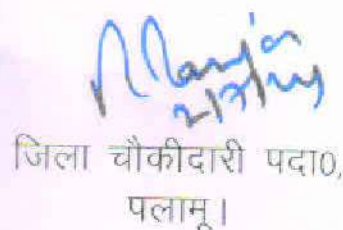 जिला चौकीदारी पदा0,
पलामू।